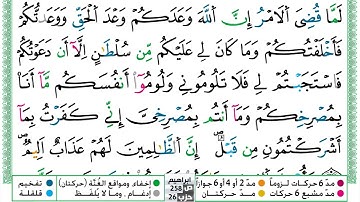 لَمَّا قُضِيَ ٱلْأَمْرُ إِنَّ ٱللَّهَ وَعَدَكُمْ وَعْدَ ٱلْحَقِّ وَوَعَدتُّكُمْ
فَأَخْلَفْتُكُمْ وَمَا كَانَ لِيَ عَلَيْكُم مِّن سُلْطَٰنٍ إِلَّآ أَن دَعَوْتُكُمْ
فَٱسْتَجَبْتُمْ لِي فَلَا تَلُومُونِي وَلُومُوٓا۟ أَنفُسَكُم مَّآ أَنَا۠
بِمُصْرِخِكُمْ وَمَآ أَنتُم بِمُصْرِخِيَّ إِنِّي كَفَرْتُ بِمَآ
أَشْرَكْتُمُونِ مِن قَبْلُ إِنَّ ٱلظَّٰلِمِينَ لَهُمْ عَذَابٌ أَلِيمٌ
مدّ 6 حركات لزوماً مدّ 2 أو 4 أو 6 جوازاً ابراهيم ص 258 حزب 26 إخفاء ومواقع الغُنَّة (حركتان) تفخيم
مدّ مشبع 6 حركات مدّ حركتان إدغام . وما لا يُلفظ قلقلة